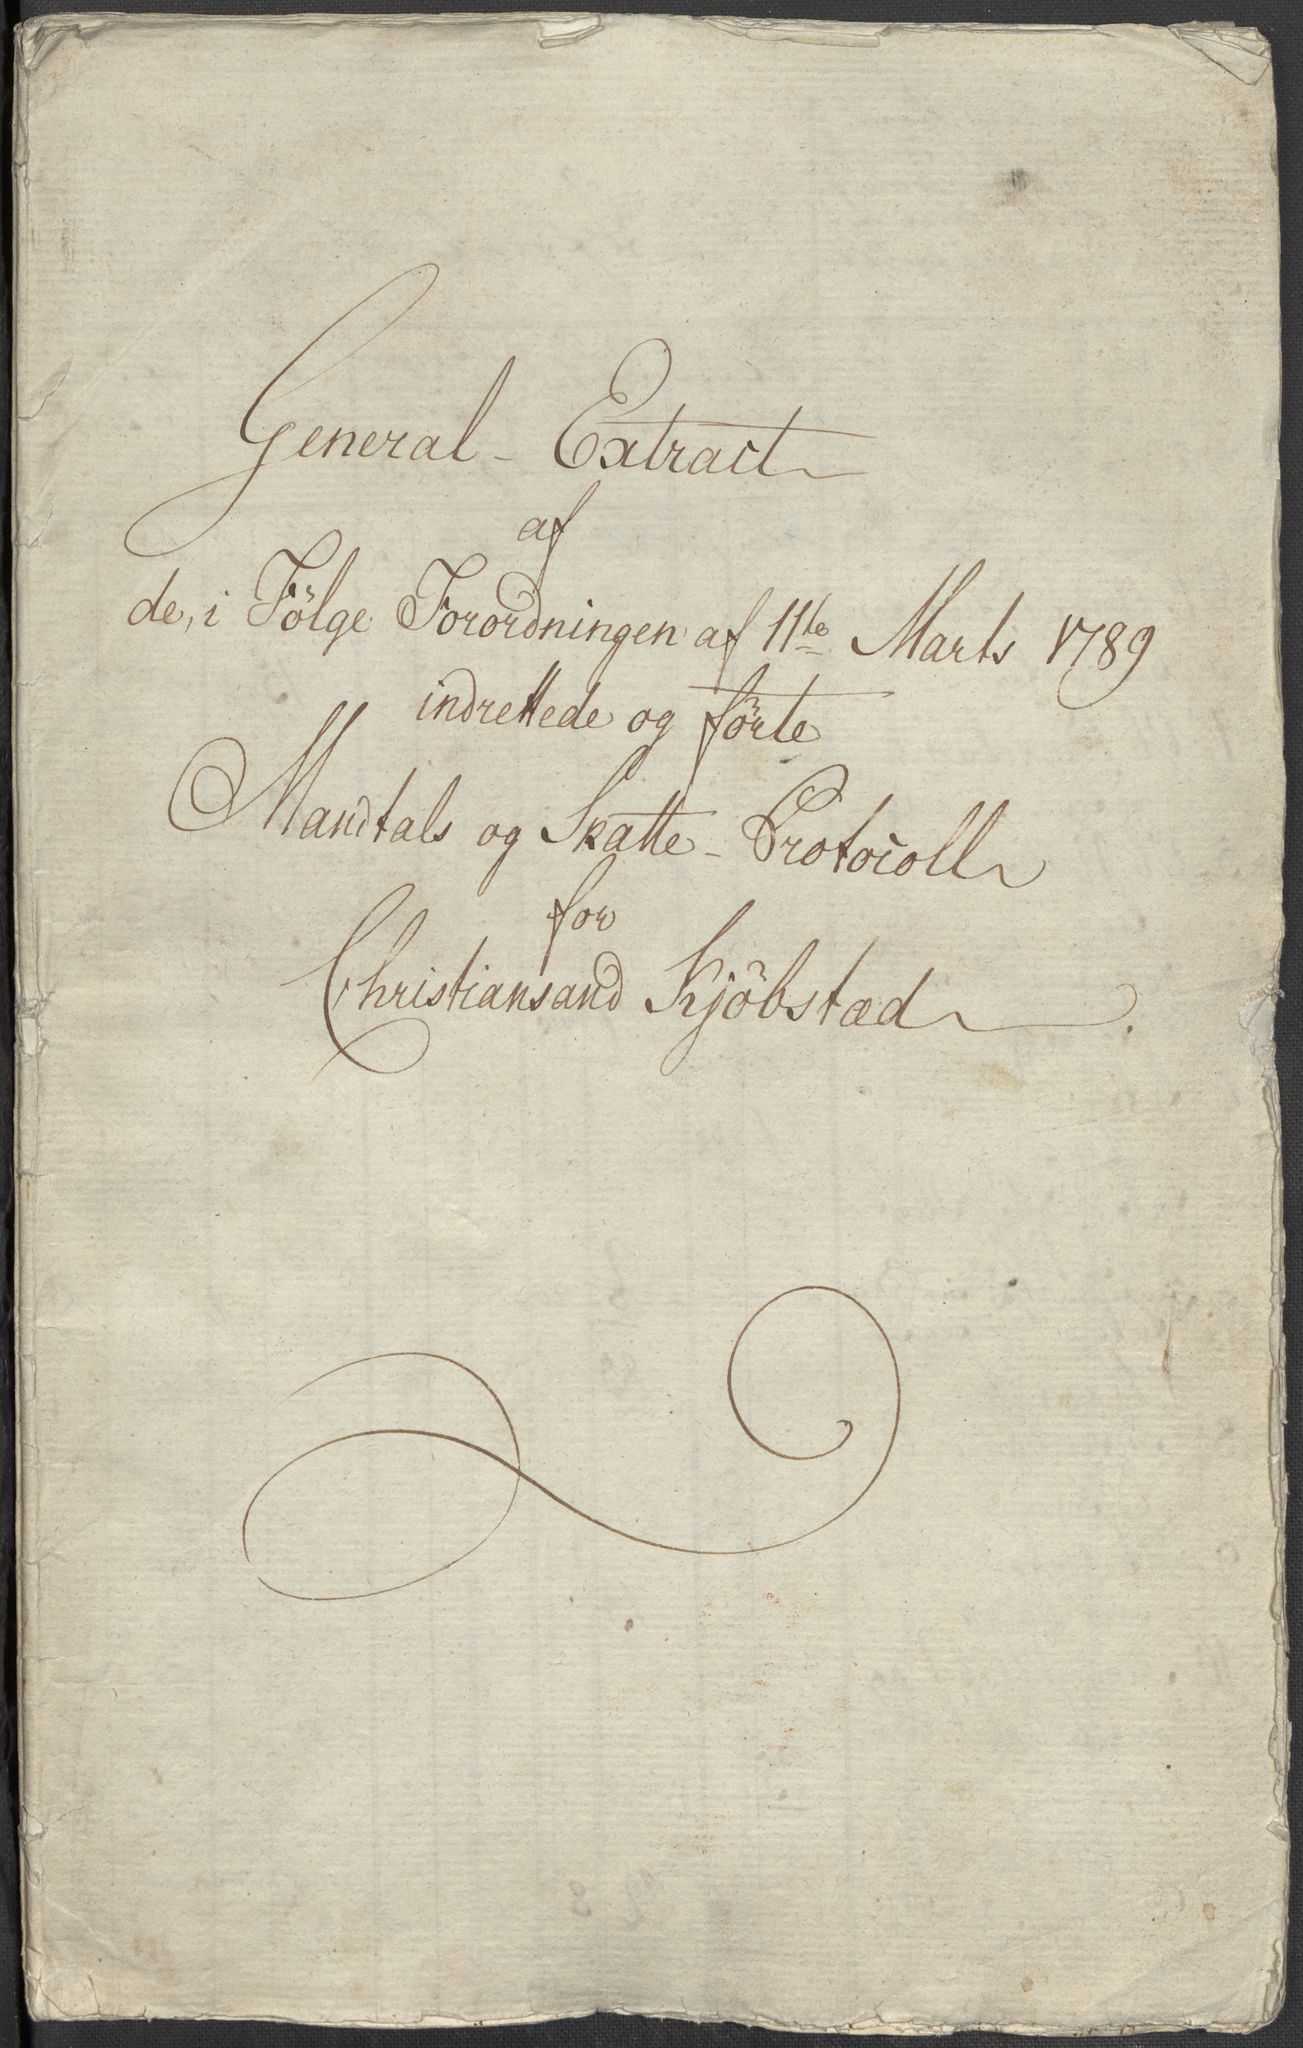 General - Extract
af
de, i Fölge Forordningen af 11te Marts 1789
indrettede og förte
Mandtals og Skatte - Protocoll
for
Christiansand Kjöbstæd.